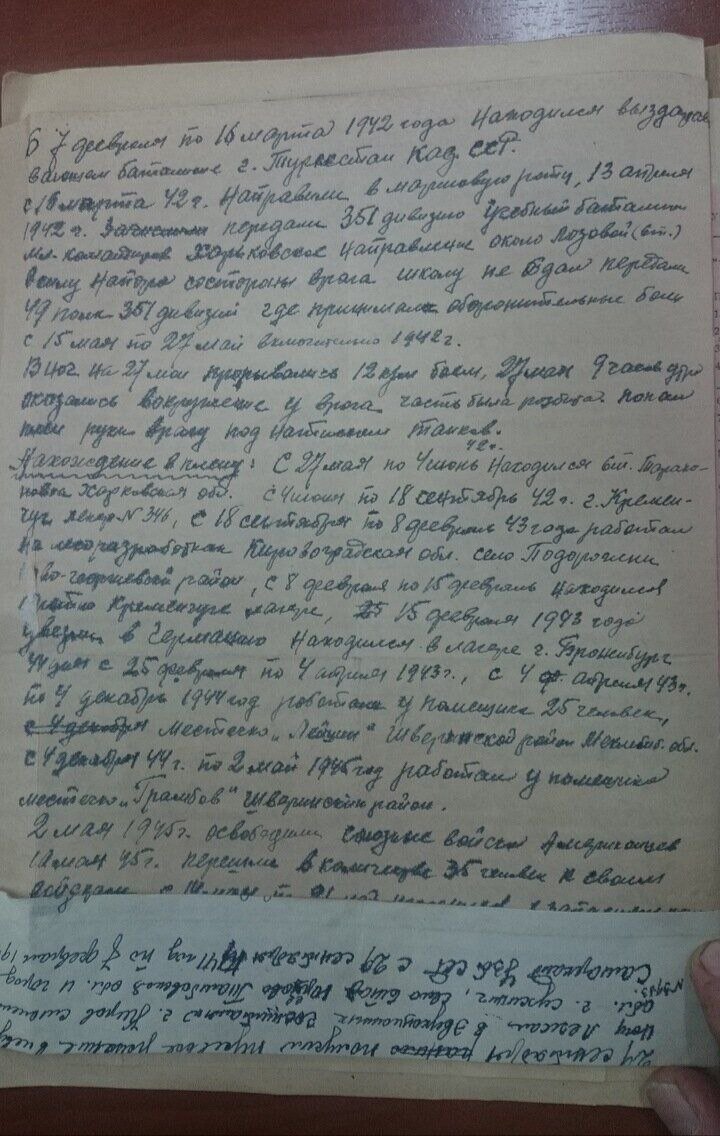 С 7 февраля по 16 марта 1942 года находился выздорав
вающем баталионе г. Туркестан Каз. ССР.
с 16 марта 42 г. Направили в маршовую роту, 13 апреля
1942 г. передали 351 дивизию учебный баталион
мл. командиров Харьковское направление около Лозовой (ст.)
всилу напора состороны врага школу не
49 полк 351 дивизий где принимали оборонительные бои
с 15 мая по 27 май включительно 1942 г.
В ноч на 27 мая прорывались 12 боем, 27 мая 9 часов утра
оказались вокружение у врага часть была разбита
руки врагу под натиском танков.
42 г.
Нахождение в плену: С 27 мая по 4 июнь Находился
Харковская обл. с 4 июня по 18 сентябрь 42 г. г. Кремен-
чуг, № 346, с 18 сентября по 8 февраль 43 года работал
на лесоразработках Кировоградская обл. село
район, с 8 февраля по 15 февраль находился
Кременчуге лагере, 15 февраля 1943 года
увезли в Германию Находился в лагере г.
с 25 февраля по 4 апреля 1943 г., с 4 апреля 43 г.
по 4 декабрь 1944 год работал у помещика 25 человек,
с 4 декабря местечко „ “ район обл.
с 4 декабря 44 г. по 2 май 1945 год работал у помещика
местечко „Грамбов“ Шверинский район.
2 мая 1945 г. освободили союзные войска Американцев
мая 45 г. перешли в количестве 35 человек к своим
войскам
29 сентября получил пулевое ранение в
ногу Лежал в эвакуационных г. Киров
обл. Тамбовская обл. и город
Самарканд УзбССР с 29 сентября 41 год по 7 февраля